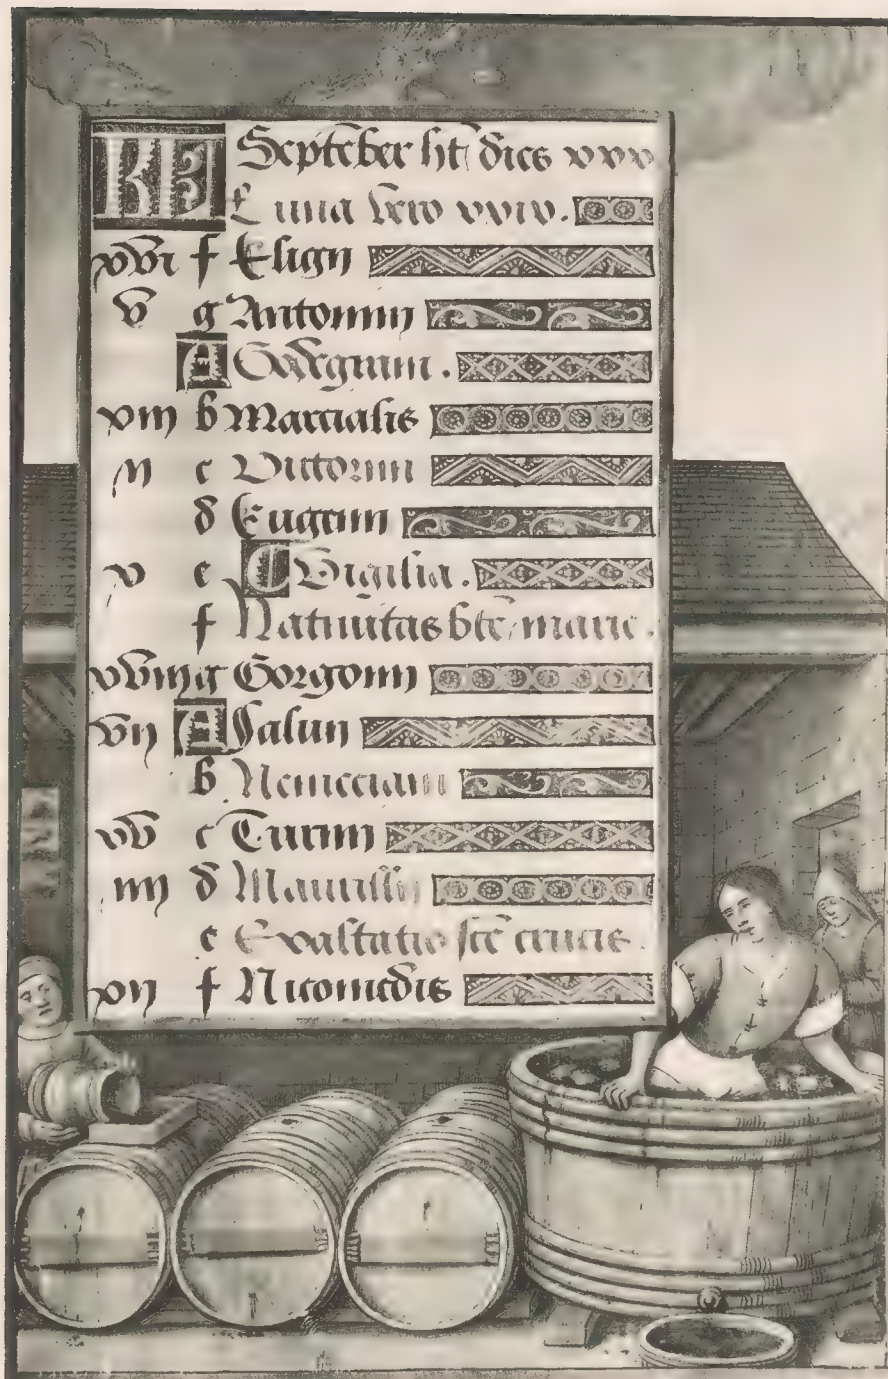 KL Septēber hт̄ dies xxx
Luna vero xxix.
xvi f Eligii
v g Antonini
A Godegrani.
xiii b Marcialis
ii c Victorini
d Eugenii
x e Vigilia.
f Natiuitas bt̄e marie.
xviii g Gorgonii
vii A Salvii
b
xv c Turini
iiii d Maurilii
e Exaltatio sc̄te crucis.
xii f Nicomedis